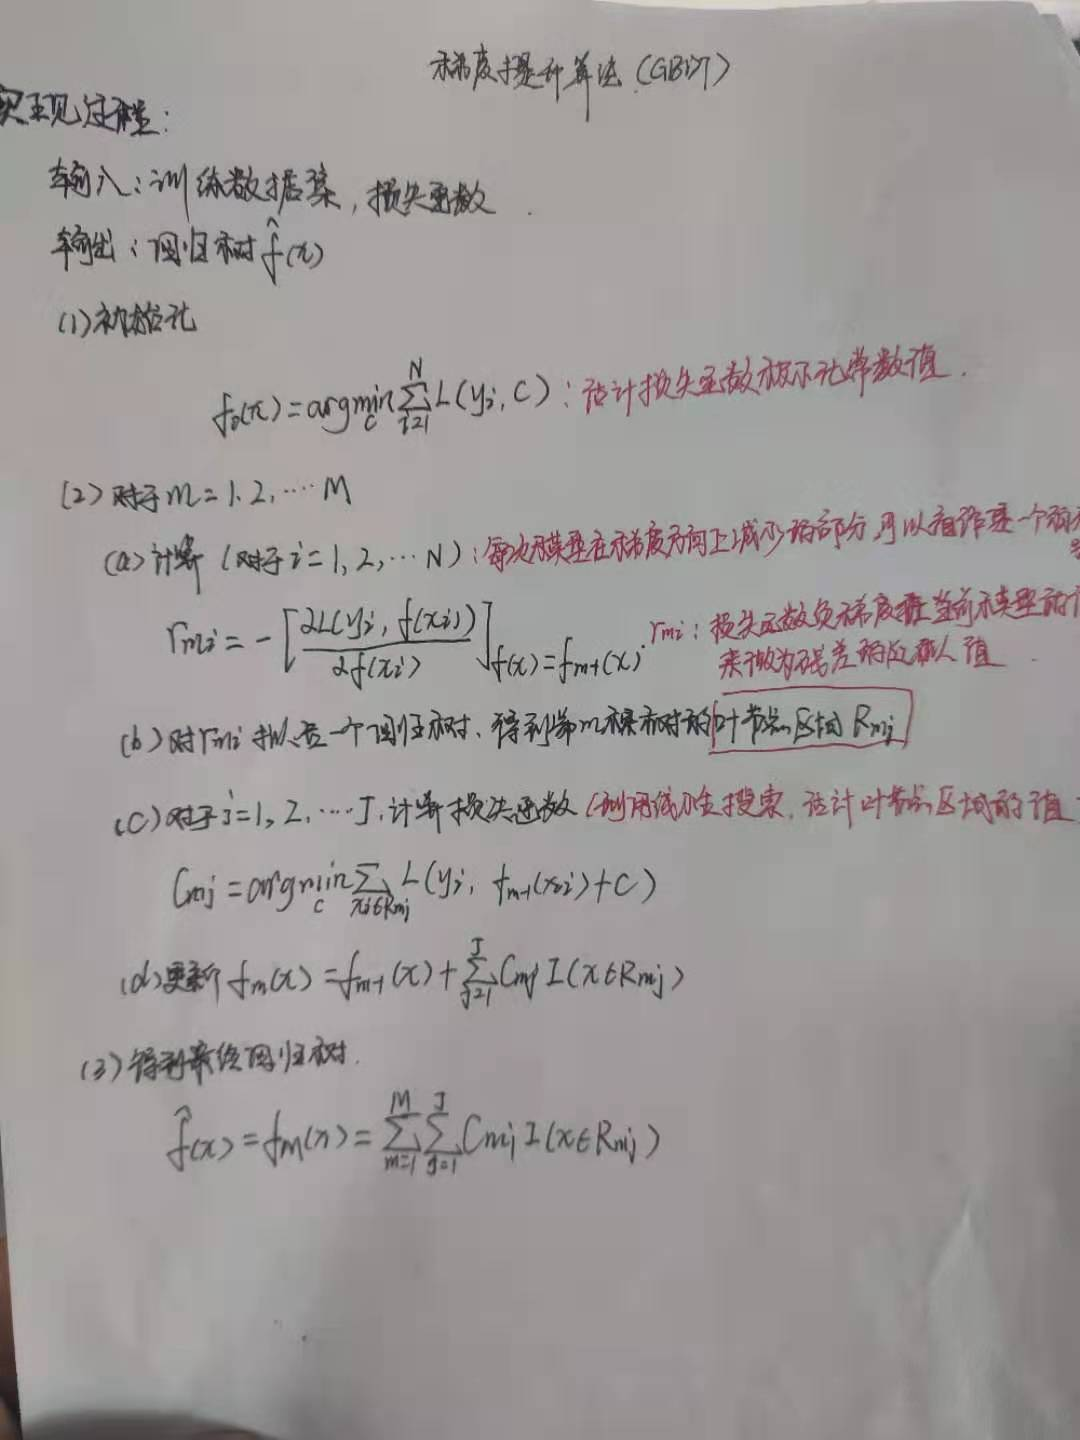 梯度提升算法(GBDT)
实现过程:
输入:训练数据集,损失函数.
输出:回归树 f̂(x)
(1)初始化
f₀(x)=argmin_c ∑_{i=1}^{N} L(yᵢ, c) : 估计损失函数极小化常数值.
(2)对于m=1,2,…M
(a)计算(对于i=1,2,…N):每次模型在梯度方向上减少的部分,可以看作是一个
r_{mi}=-[∂L(yᵢ, f(xᵢ))/∂f(xᵢ)]_{f(x)=f_{m-1}(x)}. r_{mi}:损失函数负梯度在当前模型的
来做为残差的近似值.
(b)对r_{mi}拟合一个回归树,得到第m棵树的叶节点区域R_{mj}
(c)对于j=1,2,…J,计算损失函数(利用线性搜索,估计叶节点区域的值
C_{mj}=argmin_c ∑_{xᵢ∈R_{mj}} L(yᵢ, f_{m-1}(xᵢ)+c)
(d)更新 f_m(x)=f_{m-1}(x)+∑_{j=1}^{J} C_{mj} I(x∈R_{mj})
(3)得到最终回归树.
f̂(x)=f_M(x)=∑_{m=1}^{M}∑_{j=1}^{J} C_{mj} I(x∈R_{mj})